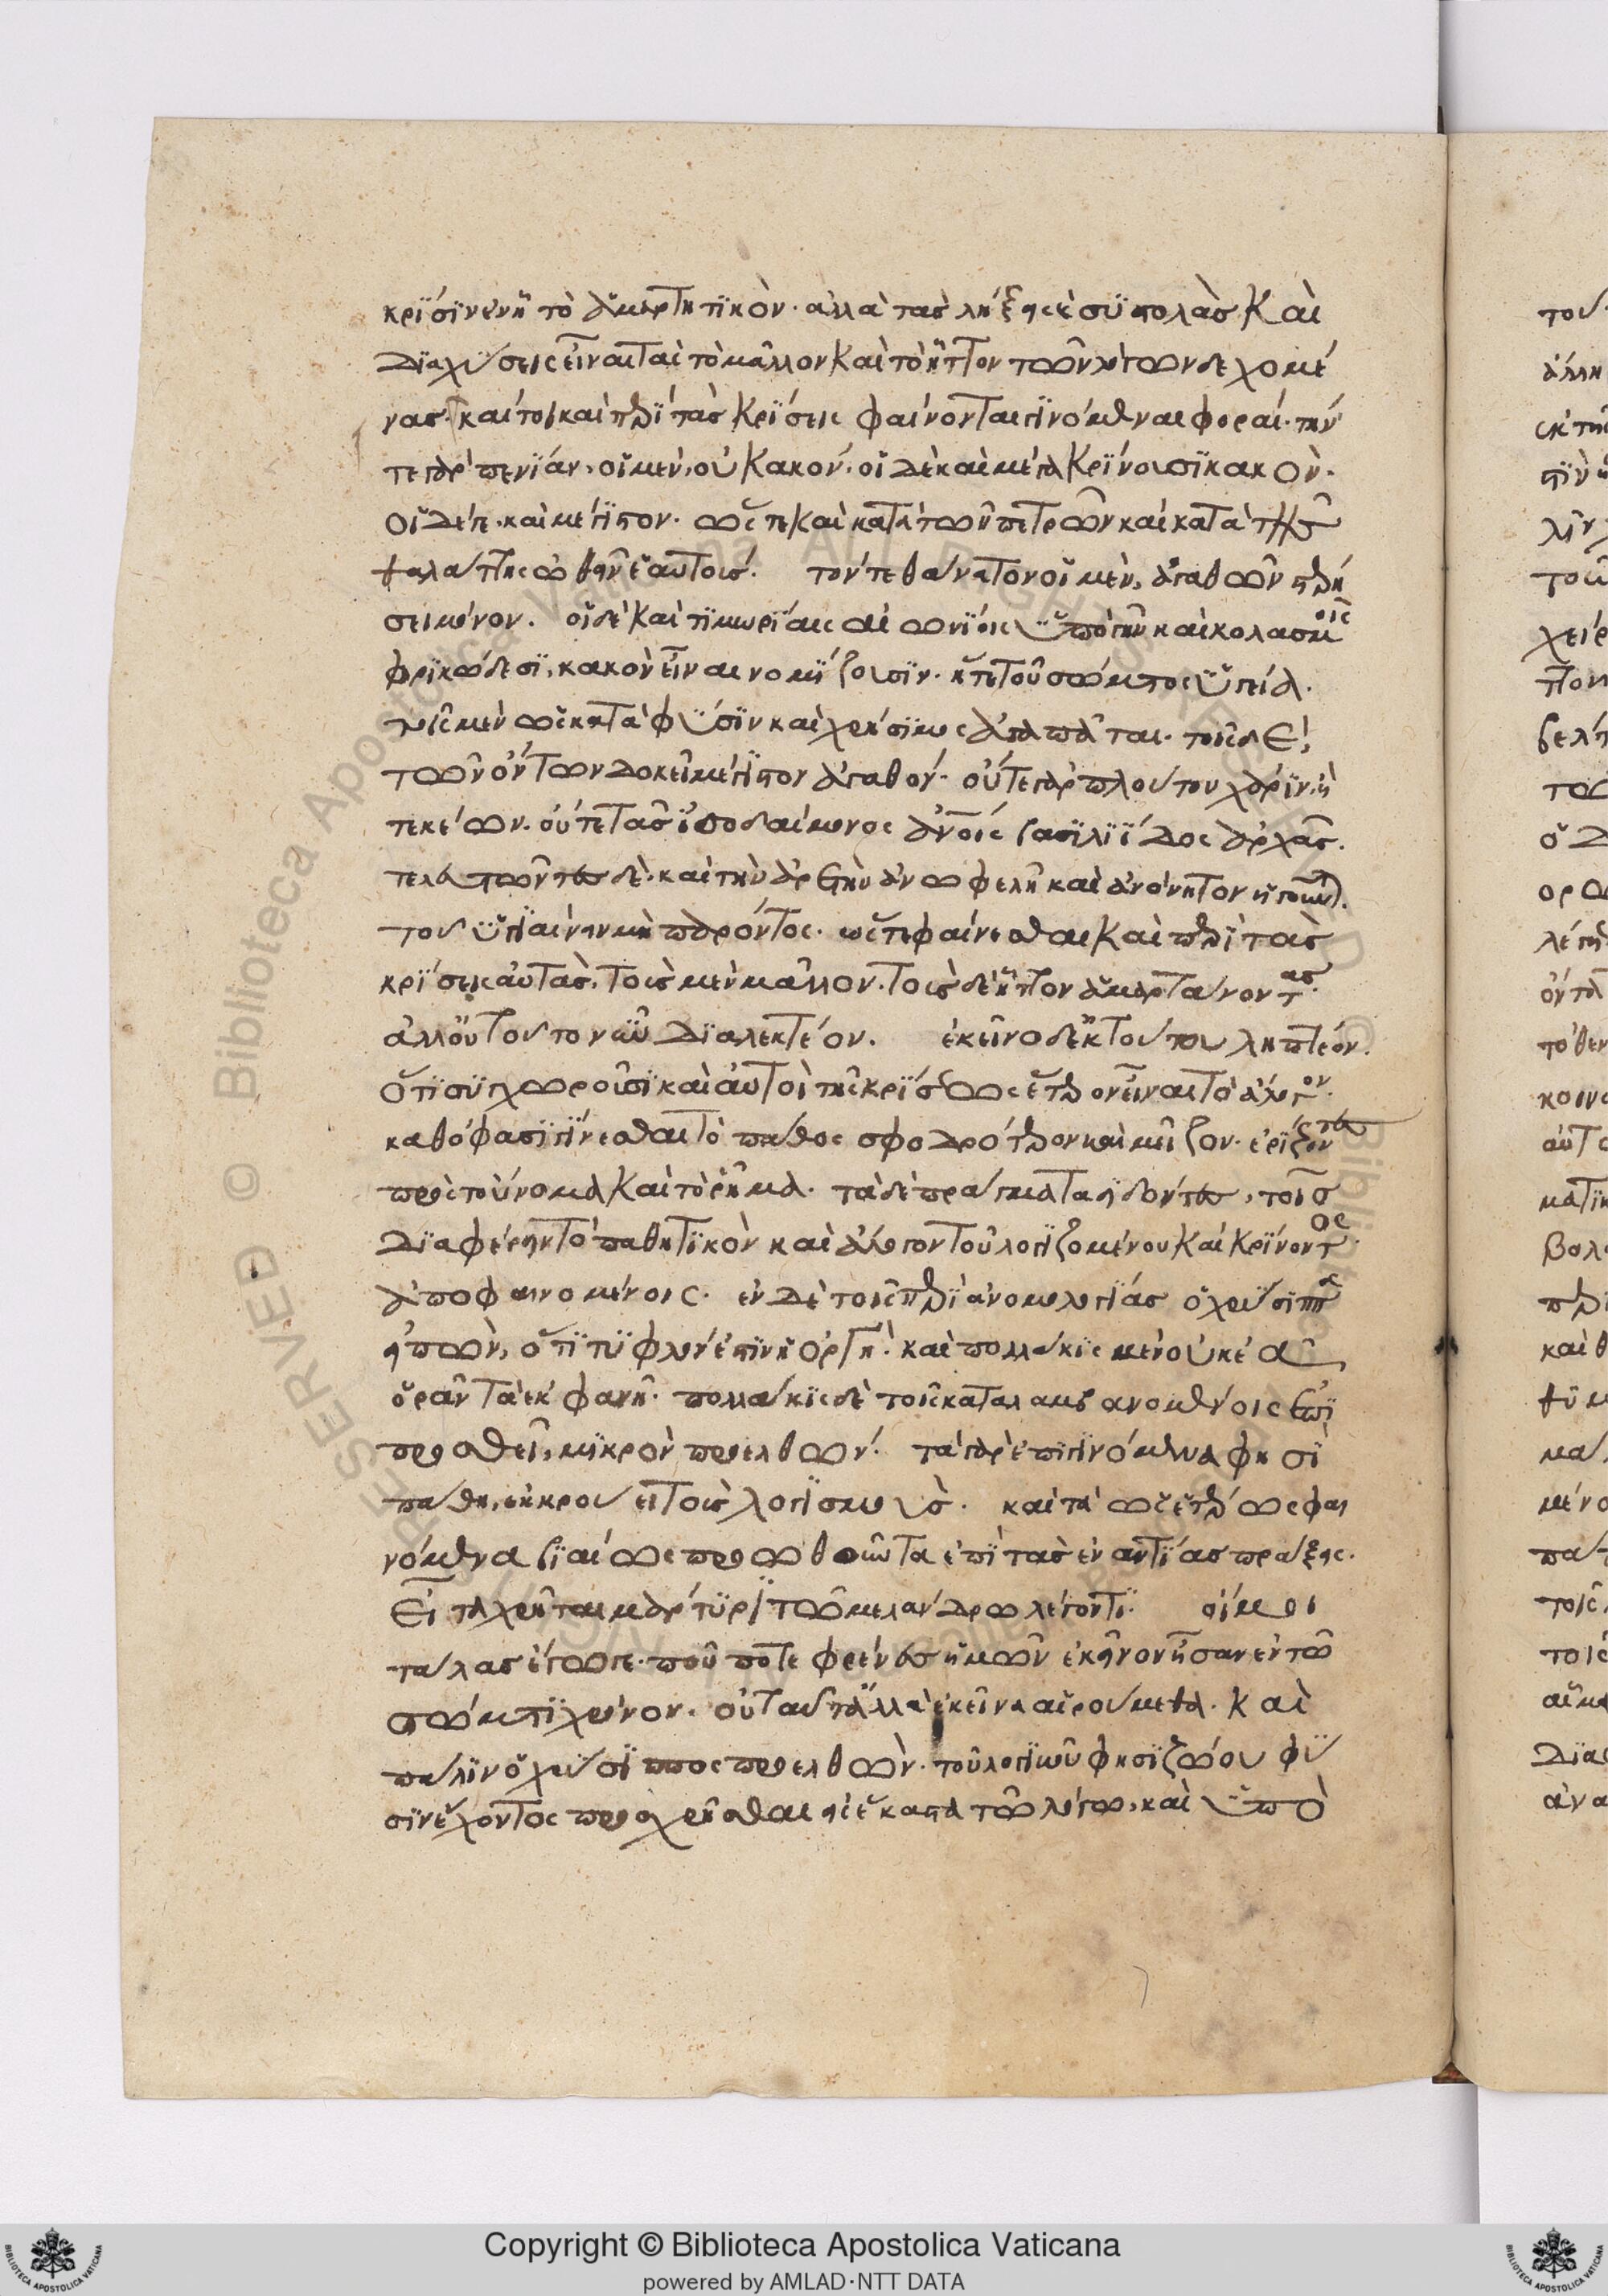 κρίσιν ἐνῆ τὸ ἁμαρτητικὸν. ἀλλὰ τὰς λήξεις ἐσυστολὰς καὶ
διαχύσεις εἶναι ταὶ τὸ μᾶλλον καὶ τὸ ἧττον τῶν λόγων δεχομέ
νας. καίτοι καὶ περὶ τὰς κρίσεις φαίνονται γινόμεναι φοραί. τήν
τε γὰρ πενίαν, οἱ μὲν, οὐ κακόν. οἱ δὲ καὶ μέγα κρίνουσι κακὸν.
οἱ δέ γε. καὶ μέγιστον. ὥστε καὶ κατὰ τῶν πετρῶν καὶ κατὰ τῆς
θαλάττης ὠθεῖν ἑαυτούς. τόν τε θάνατον οἱ μὲν, ἀγαθῶν στερή
σει μόνον. οἱ δὲ καὶ τιμωρίαις αἰωνίοις ὑπὸ γῆν καὶ κολασμοῖς
φρικώδεσι, κακὸν εἶναι νομίζουσιν. ἥ τε τοῦ σώματος ὑγεία.
τοῖς μὲν ὡς κατὰ φύσιν καὶ χρήσιμος ἀγαπᾶται. τοῖς δὲ,
τῶν ὄντων δοκεῖ μέγιστον ἀγαθόν. οὔτε γὰρ πλούτου χάριν, ἢ
τεκέων. οὔτε τᾶς ἰσοδαίμονος ἀνοις βασιληΐδος ἀρχᾶς.
τελευτῶντες δὲ. καὶ τὴν ἀρετὴν ἀνωφελῆ καὶ ἀνόνητον ἡγοῦνται.
τοῦ ὑγιαίνειν μὴ παρόντος. ὥστε φαίνεσθαι καὶ περὶ τὰς
κρίσεις αὐτὰς, τοὺς μὲν μᾶλλον. τοὺς δὲ ἧττον ἁμαρτάνοντας.
ἀλλ' οὐ τοῦτο νῦν διαλεκτέον. ἐκεῖνο δ' ἐκ τούτου ληπτέον.
ὅτι συγχωροῦσι καὶ αὐτοὶ τῆς κρίσεως ἕτερον εἶναι τὸ ἄλογον.
καθό φασι γίνεσθαι τὸ πάθος σφοδρότερον καὶ μεῖζον. ἐρίζοντες
πρὸς τοὔνομα καὶ τὸ ῥῆμα. τὰ δὲ πράγματα διδόντες, τοῖς
διαφέρειν τὸ παθητικὸν καὶ ἄλογον τοῦ λογιζομένου καὶ κρίνοντος
ἀποφαινομένοις. ἐν δὲ τοῖς περὶ ἀνομολογίας ὁ χρύσιππος
εἰπὼν, ὅτι τυφλόν ἐστιν ἡ ὀργή. καὶ πολλάκις μὲν οὐκ ἐᾶ
ὁρᾶν τὰ ἐκφανῆ. πολλάκις δὲ τοῖς καταλαμβανομένοις ἐπι
προσθεῖ, μικρὸν προελθών. τὰ γὰρ ἐπιγινόμενα φησὶ
πάθη, ἐκκρούει τοὺς λογισμοὺς. καὶ τὰ ὡς ἑτέρως φαι
νόμενα βιαίως προωθοῦντα ἐπὶ τὰς ἐναντίας πράξεις.
εἶτα χρῆται μάρτυρι τῶ μελάνδρω λέγοντι. οἴμοι
τάλας ἔγωγε. ποῦ ποτε φρένες ἡμῶν ἐκεῖνον ἦσαν ἐν τῶ
σώματι χρόνον. οὐ ταῦτ' ἀλλ' ἐκεῖνα αἱρούμεθα. καὶ
πάλιν ὁ χρύσιππος προελθὼν. τοῦ λογικοῦ φησι ζώου φύ
σιν ἔχοντος προσχρῆσθαι εἰς ἕκαστα τῶ λόγω, καὶ ὑπὸ